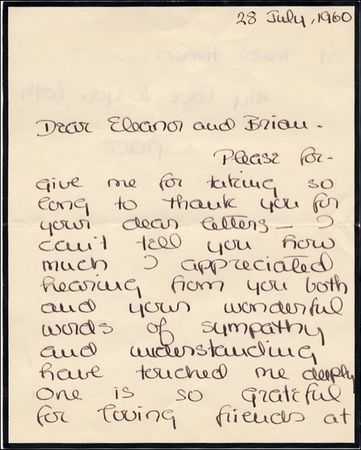 28 July, 1960
Dear Eleanor and Brian -
Please for-
give me for taking so
long to thank you for
your dear letters — I
can't tell you how
much I appreciated
hearing from you both
and your wonderful
words of sympathy
and understanding
have touched me deeply
One is so grateful
for loving friends at